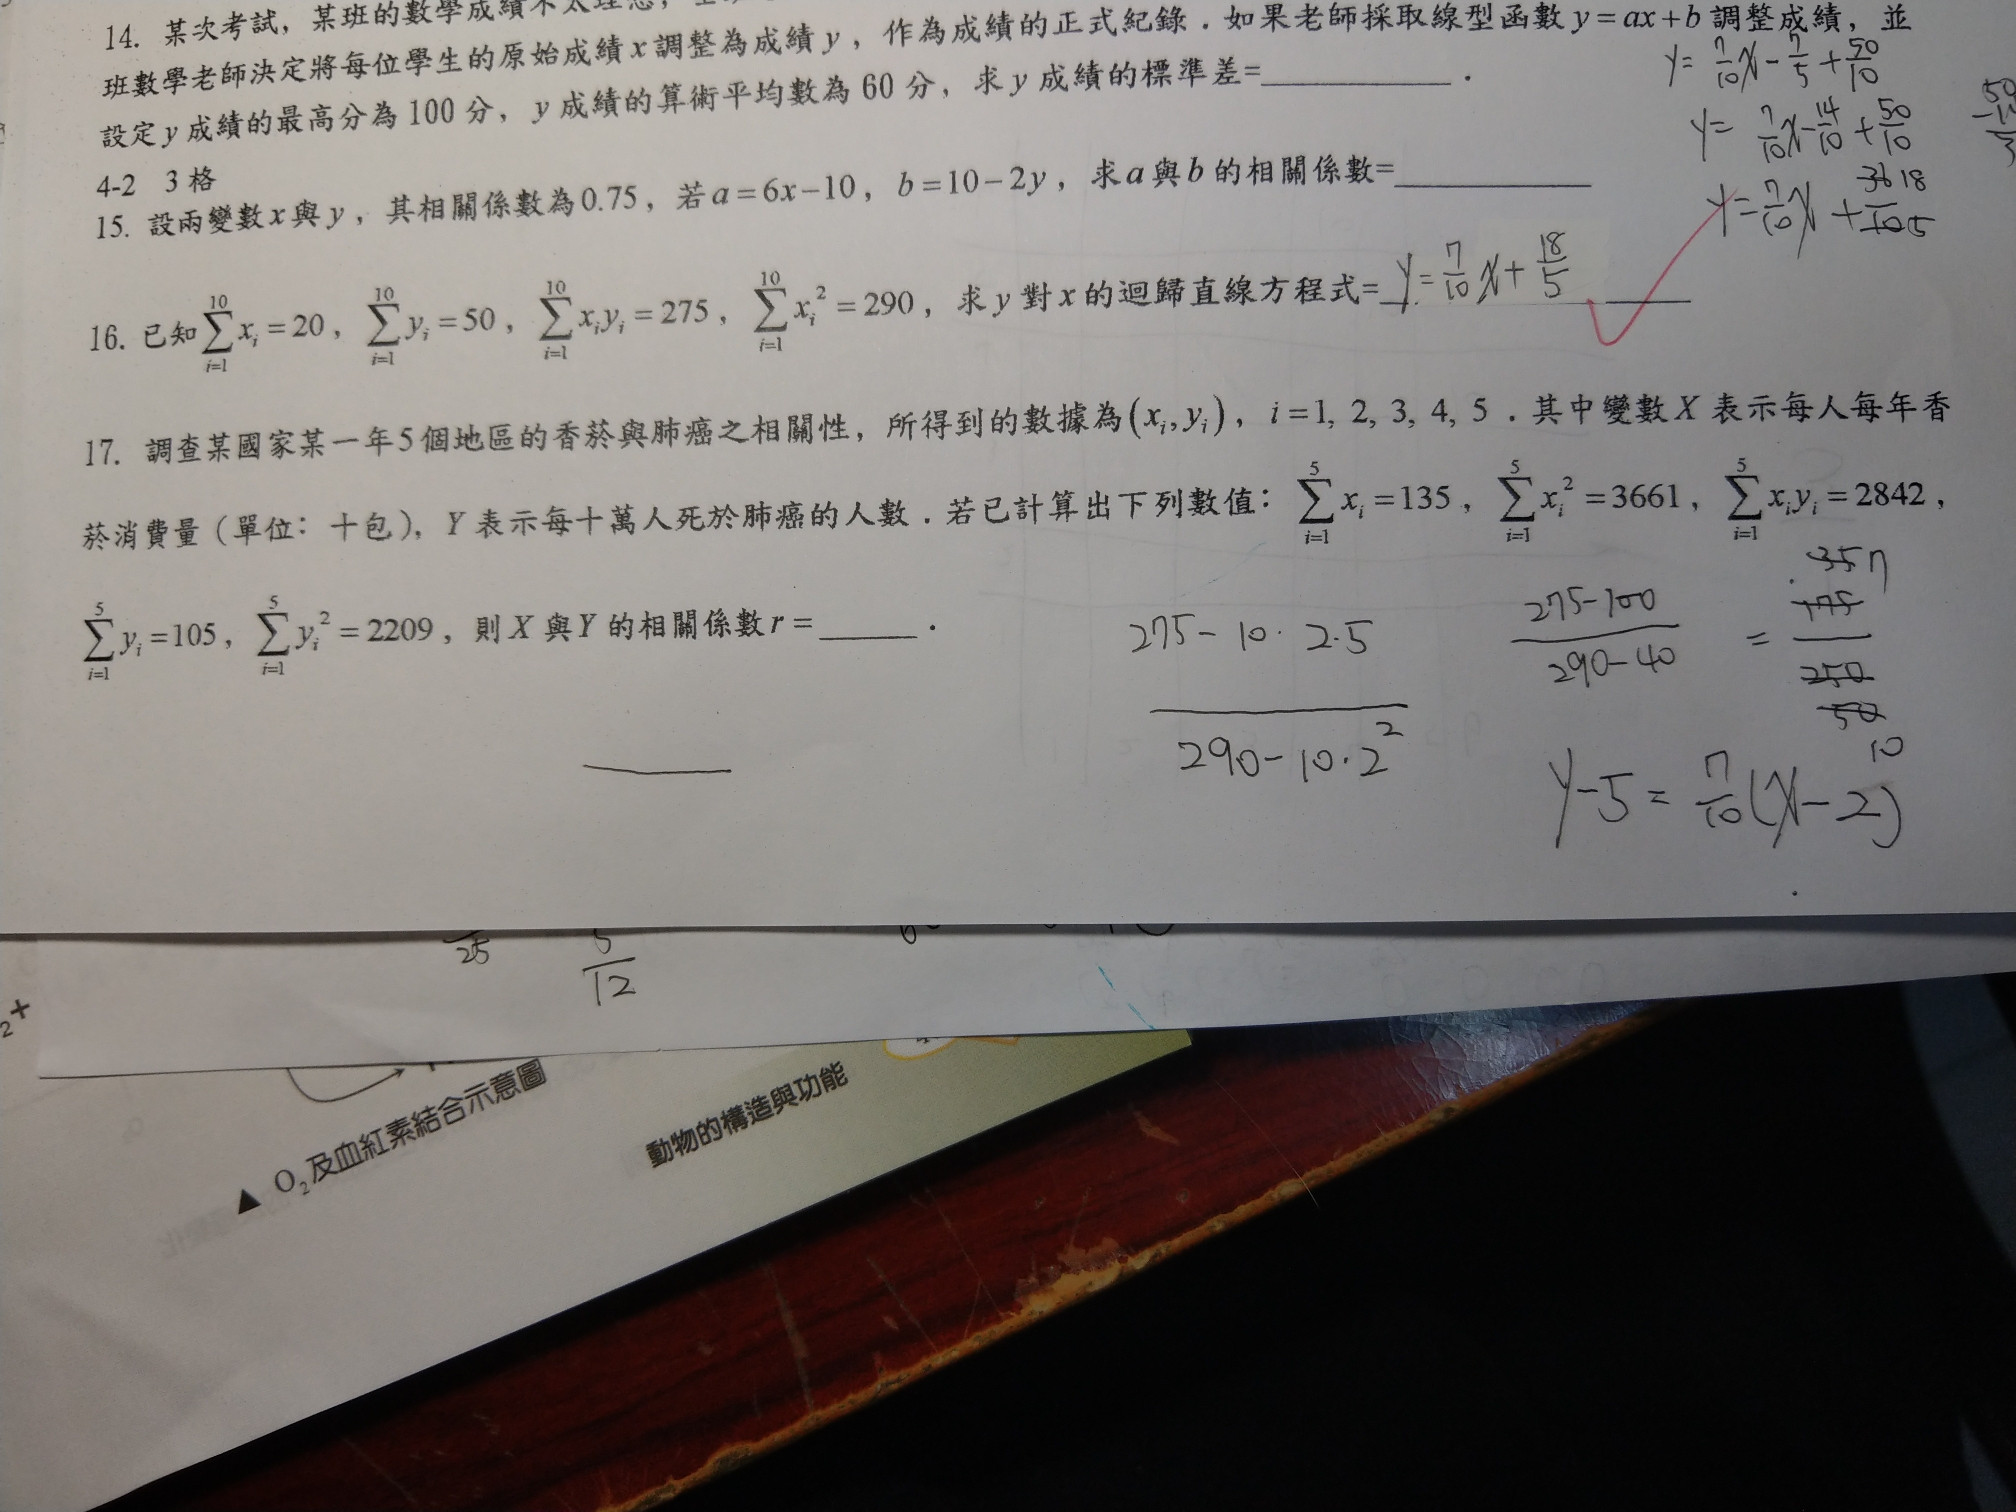 14. 某次考試，某班的數學成績不太理想，
班數學老師決定將每位學生的原始成績x調整為成績y，作為成績的正式紀錄．如果老師採取線型函數y=ax+b調整成績，並
設定y成績的最高分為100分，y成績的算術平均數為60分，求y成績的標準差=________．
y= 7/10 x - 7/5 + 50/10
y= 7/10 x - 14/10 + 50/10
y= 7/10 x + 18/5
4-2 3格
15. 設兩變數x與y，其相關係數為0.75，若a=6x-10，b=10-2y，求a與b的相關係數=________
16. 已知∑_{i=1}^{10} x_i=20，∑_{i=1}^{10} y_i=50，∑_{i=1}^{10} x_i y_i=275，∑_{i=1}^{10} x_i²=290，求y對x的迴歸直線方程式= y= 7/10 x + 18/5
17. 調查某國家某一年5個地區的香菸與肺癌之相關性，所得到的數據為(x_i, y_i)，i=1, 2, 3, 4, 5．其中變數X表示每人每年香
菸消費量（單位：十包），Y表示每十萬人死於肺癌的人數．若已計算出下列數值：∑_{i=1}^{5} x_i=135，∑_{i=1}^{5} x_i²=3661，∑_{i=1}^{5} x_i y_i=2842，
∑_{i=1}^{5} y_i=105，∑_{i=1}^{5} y_i²=2209，則X與Y的相關係數r=______．
275-10·2·5
290-10·2²
275-100
290-40
= 175
35 7
250
50
10
y-5= 7/10 (x-2)
25
5/12
▲ O₂及血紅素結合示意圖
動物的構造與功能